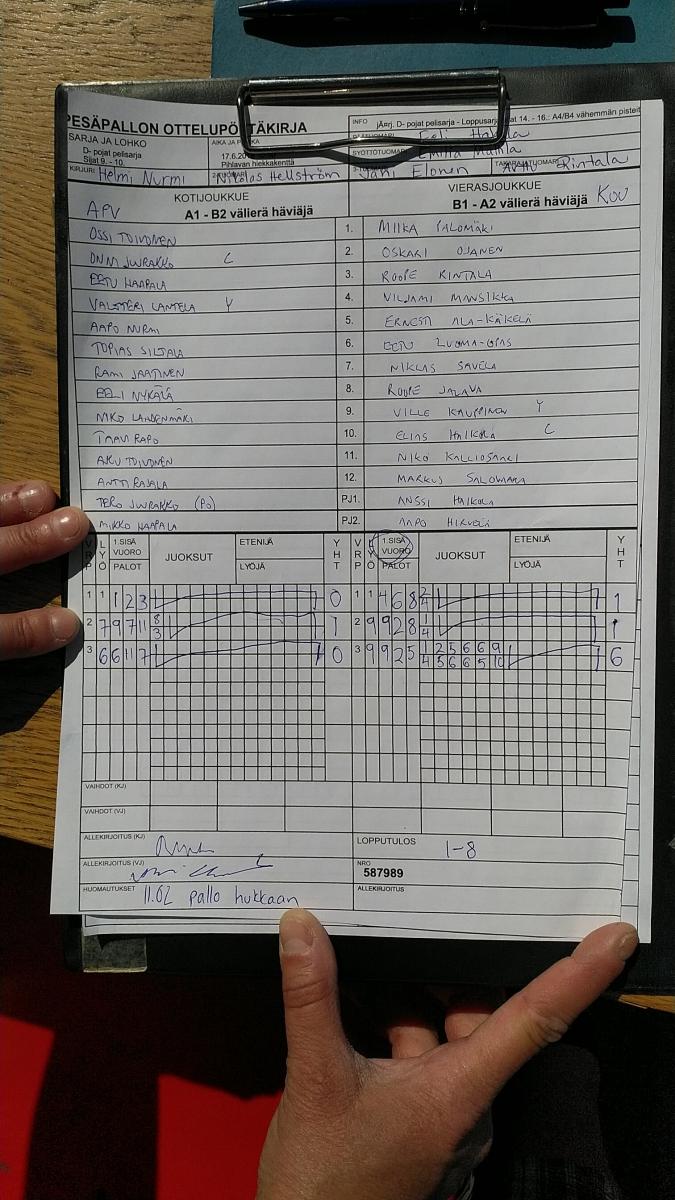 PESÄPALLON OTTELUPÖYTÄKIRJA
INFO jÄ¤rj. D- pojat pelisarja - Loppusarjat 14. - 16.: A4/B4 vähemmän pisteit
SARJA JA LOHKO
D- pojat pelisarja
Sijat 9. - 10.
AIKA JA PAIKKA
17.6.20
Pihlavan hiekkakenttä
Eeli
SYÖTTÖTUOMARI Emilia
KIRJURI Helmi Nurmi
2-TUOMARI Nikolas Hellström
3-TUOMARI Jani Elonen
TAKARAJATUOMARI Arttu Rintala
KOTIJOUKKUE
APV A1 - B2 välierä häviäjä
VIERASJOUKKUE
B1 - A2 välierä häviäjä KOU
OSSI TOIVONEN 1. MIIKA SALOMÄKI
ONNI JUURAKKO C 2. OSKARI OJANEN
EETU HAAPALA 3. ROOPE RINTALA
VALTTERI LANTELA Y 4. VILJAMI MANSIKKA
AAPO NURMI 5. ERNESTI ALA-KÄKELÄ
TOPIAS SILTALA 6. EETU LUOMA-OJAS
RAMI JAATINEN 7. NIKLAS SAVELA
EELI NYKÄLÄ 8. ROOPE JALAVA
NIKO LAHDENMÄKI 9. VILLE KAUPPINEN Y
TAAVI RAPO 10. ELIAS HAIKOLA C
AKU TOIVONEN 11. NIKO KALLIOSAARI
ANTTI RAJALA 12. MARKUS SALOMAA
TERO JUURAKKO (PJ) PJ1. ANSSI HAIKOLA
MIKKO HAAPALA PJ2. AAPO
VRP LYÖ 1.SISÄ VUORO PALOT JUOKSUT ETENIJÄ LYÖJÄ YHT VRP LYÖ 1.SISÄ VUORO PALOT JUOKSUT ETENIJÄ LYÖJÄ YHT
1 1 1 2 3 0 1 1 4 6 8 2/4 1
2 7 9 7 11 8/3 1 2 9 9 2 8 1/4 1
3 6 6 11 7 0 3 9 9 2 5 1/4 2/5 5/6 6/6 6/5 9/10 6
VAIHDOT (KJ)
VAIHDOT (VJ)
ALLEKIRJOITUS (KJ)
LOPPUTULOS 1-8
ALLEKIRJOITUS (VJ)
NRO
587989
HUOMAUTUKSET 11.02 pallo hukkaan
ALLEKIRJOITUS